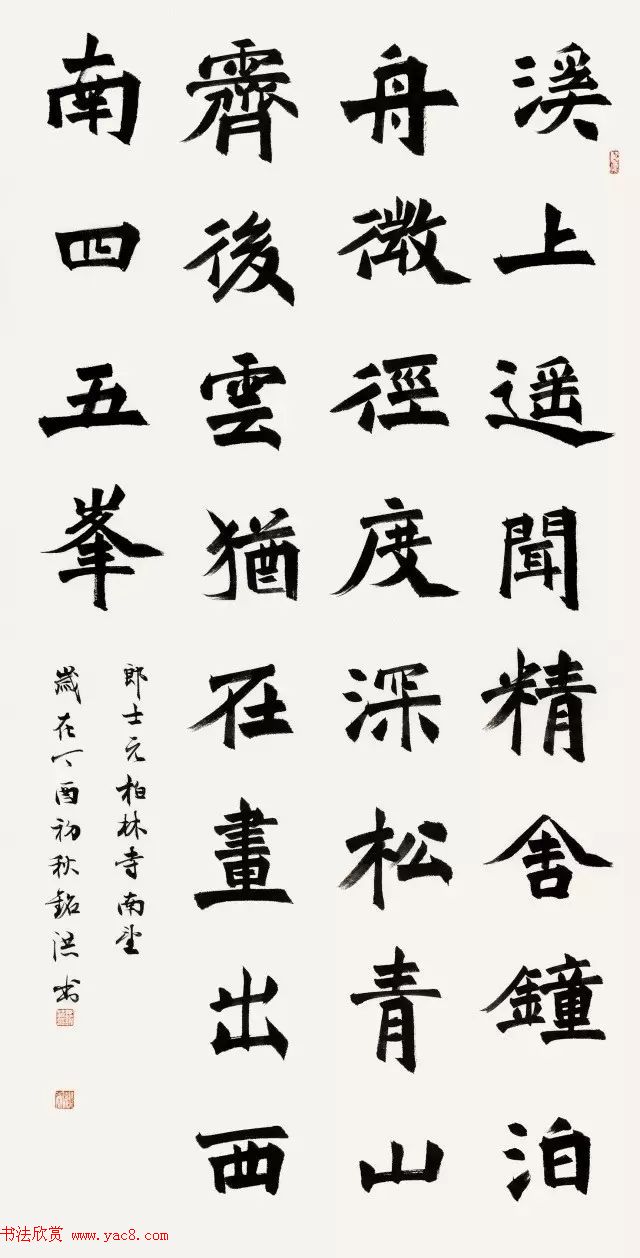 溪上遥聞精舎鐘泊
舟微徑度深松青山
霽後雲猶在畫出西
南四五峯
郎士元柏林寺南望
歲在丁酉初秋銘洪书
书法欣赏 www.yac8.com